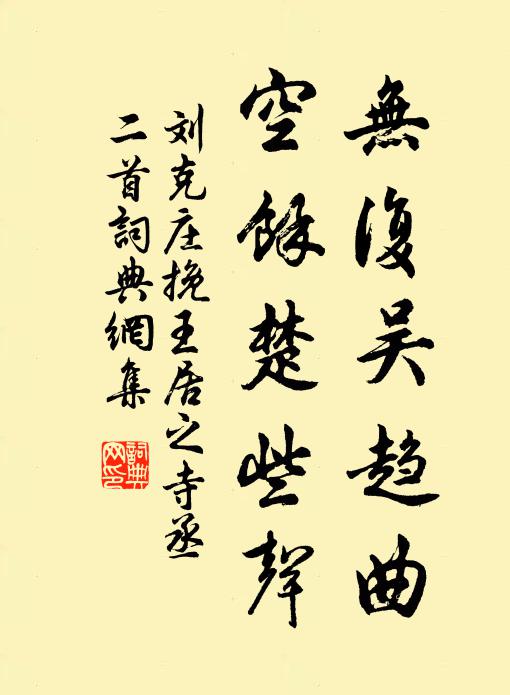 無復吴趋曲
空餘楚些聲
刘克庄挽王居之寺丞
二首詞典網集
詞典網印